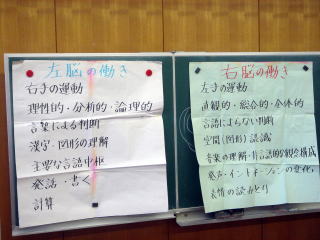 左脳の働き
右手の運動
理性的・分析的・論理的
言葉による判断
漢字・図形の理解
主要な言語中枢
発話・書く
計算
右脳の働き
左手の運動
直観的・総合的・全体的
言語によらない判断
空間(図形)認識
音楽の理解・非言語的な観念構成
発声・イントネーションの変化
表情の読みとり